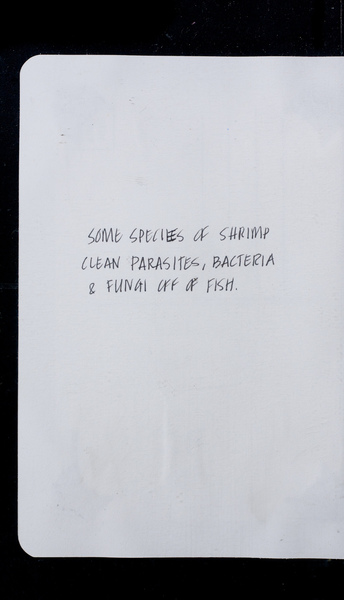 SOME SPECIES OF SHRIMP
CLEAN PARASITES, BACTERIA
& FUNGI OFF OF FISH.